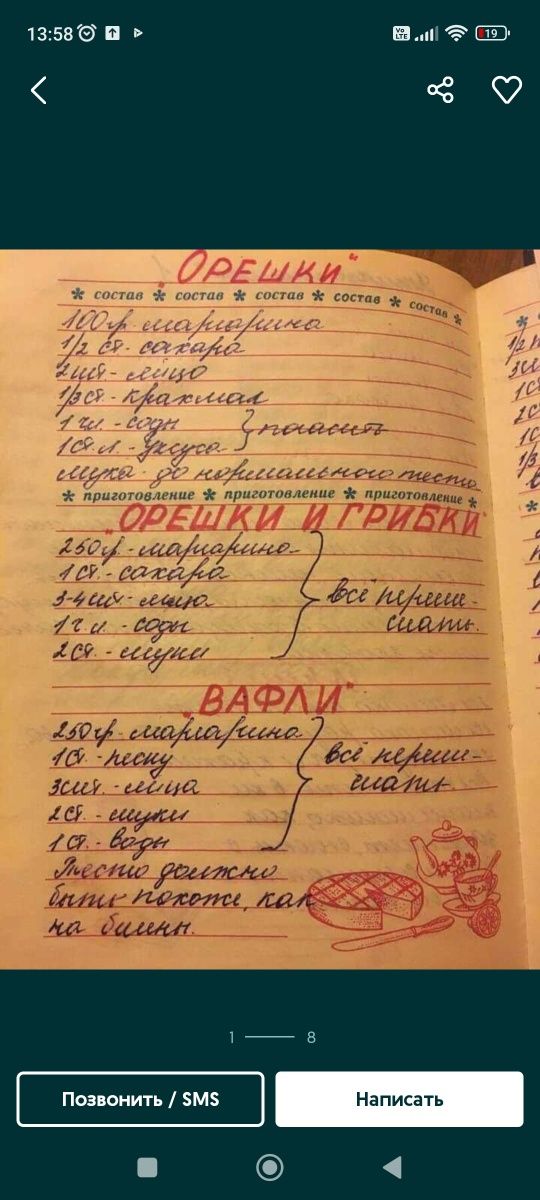 13:58
Vo LTE
19
"ОРЕШКИ"
* состав * состав * состав * состав * состав *
100гр. маргарина
1/2 ст. сахара
2 шт. - яйцо
1/3 ст. - крахмал
1 ч.л. - соды
1 ст. л. - уксуса
погасить
мука - до нормального теста
* приготовление * приготовление * приготовление *
"ОРЕШКИ И ГРИБКИ"
250гр. - маргарина
1 ст. - сахара
3-4 шт. - яйца
1 ч.л. - соды
2 ст. - муки
всё переме-
шать.
"ВАФЛИ"
250гр. маргарина
1 ст. - песку
3 шт. - яйца
2 ст. - муки
1 ст. - воды
всё переме-
шать
Тесто должно
быть похоже, как
на блины.
1 8
Позвонить / SMS
Написать